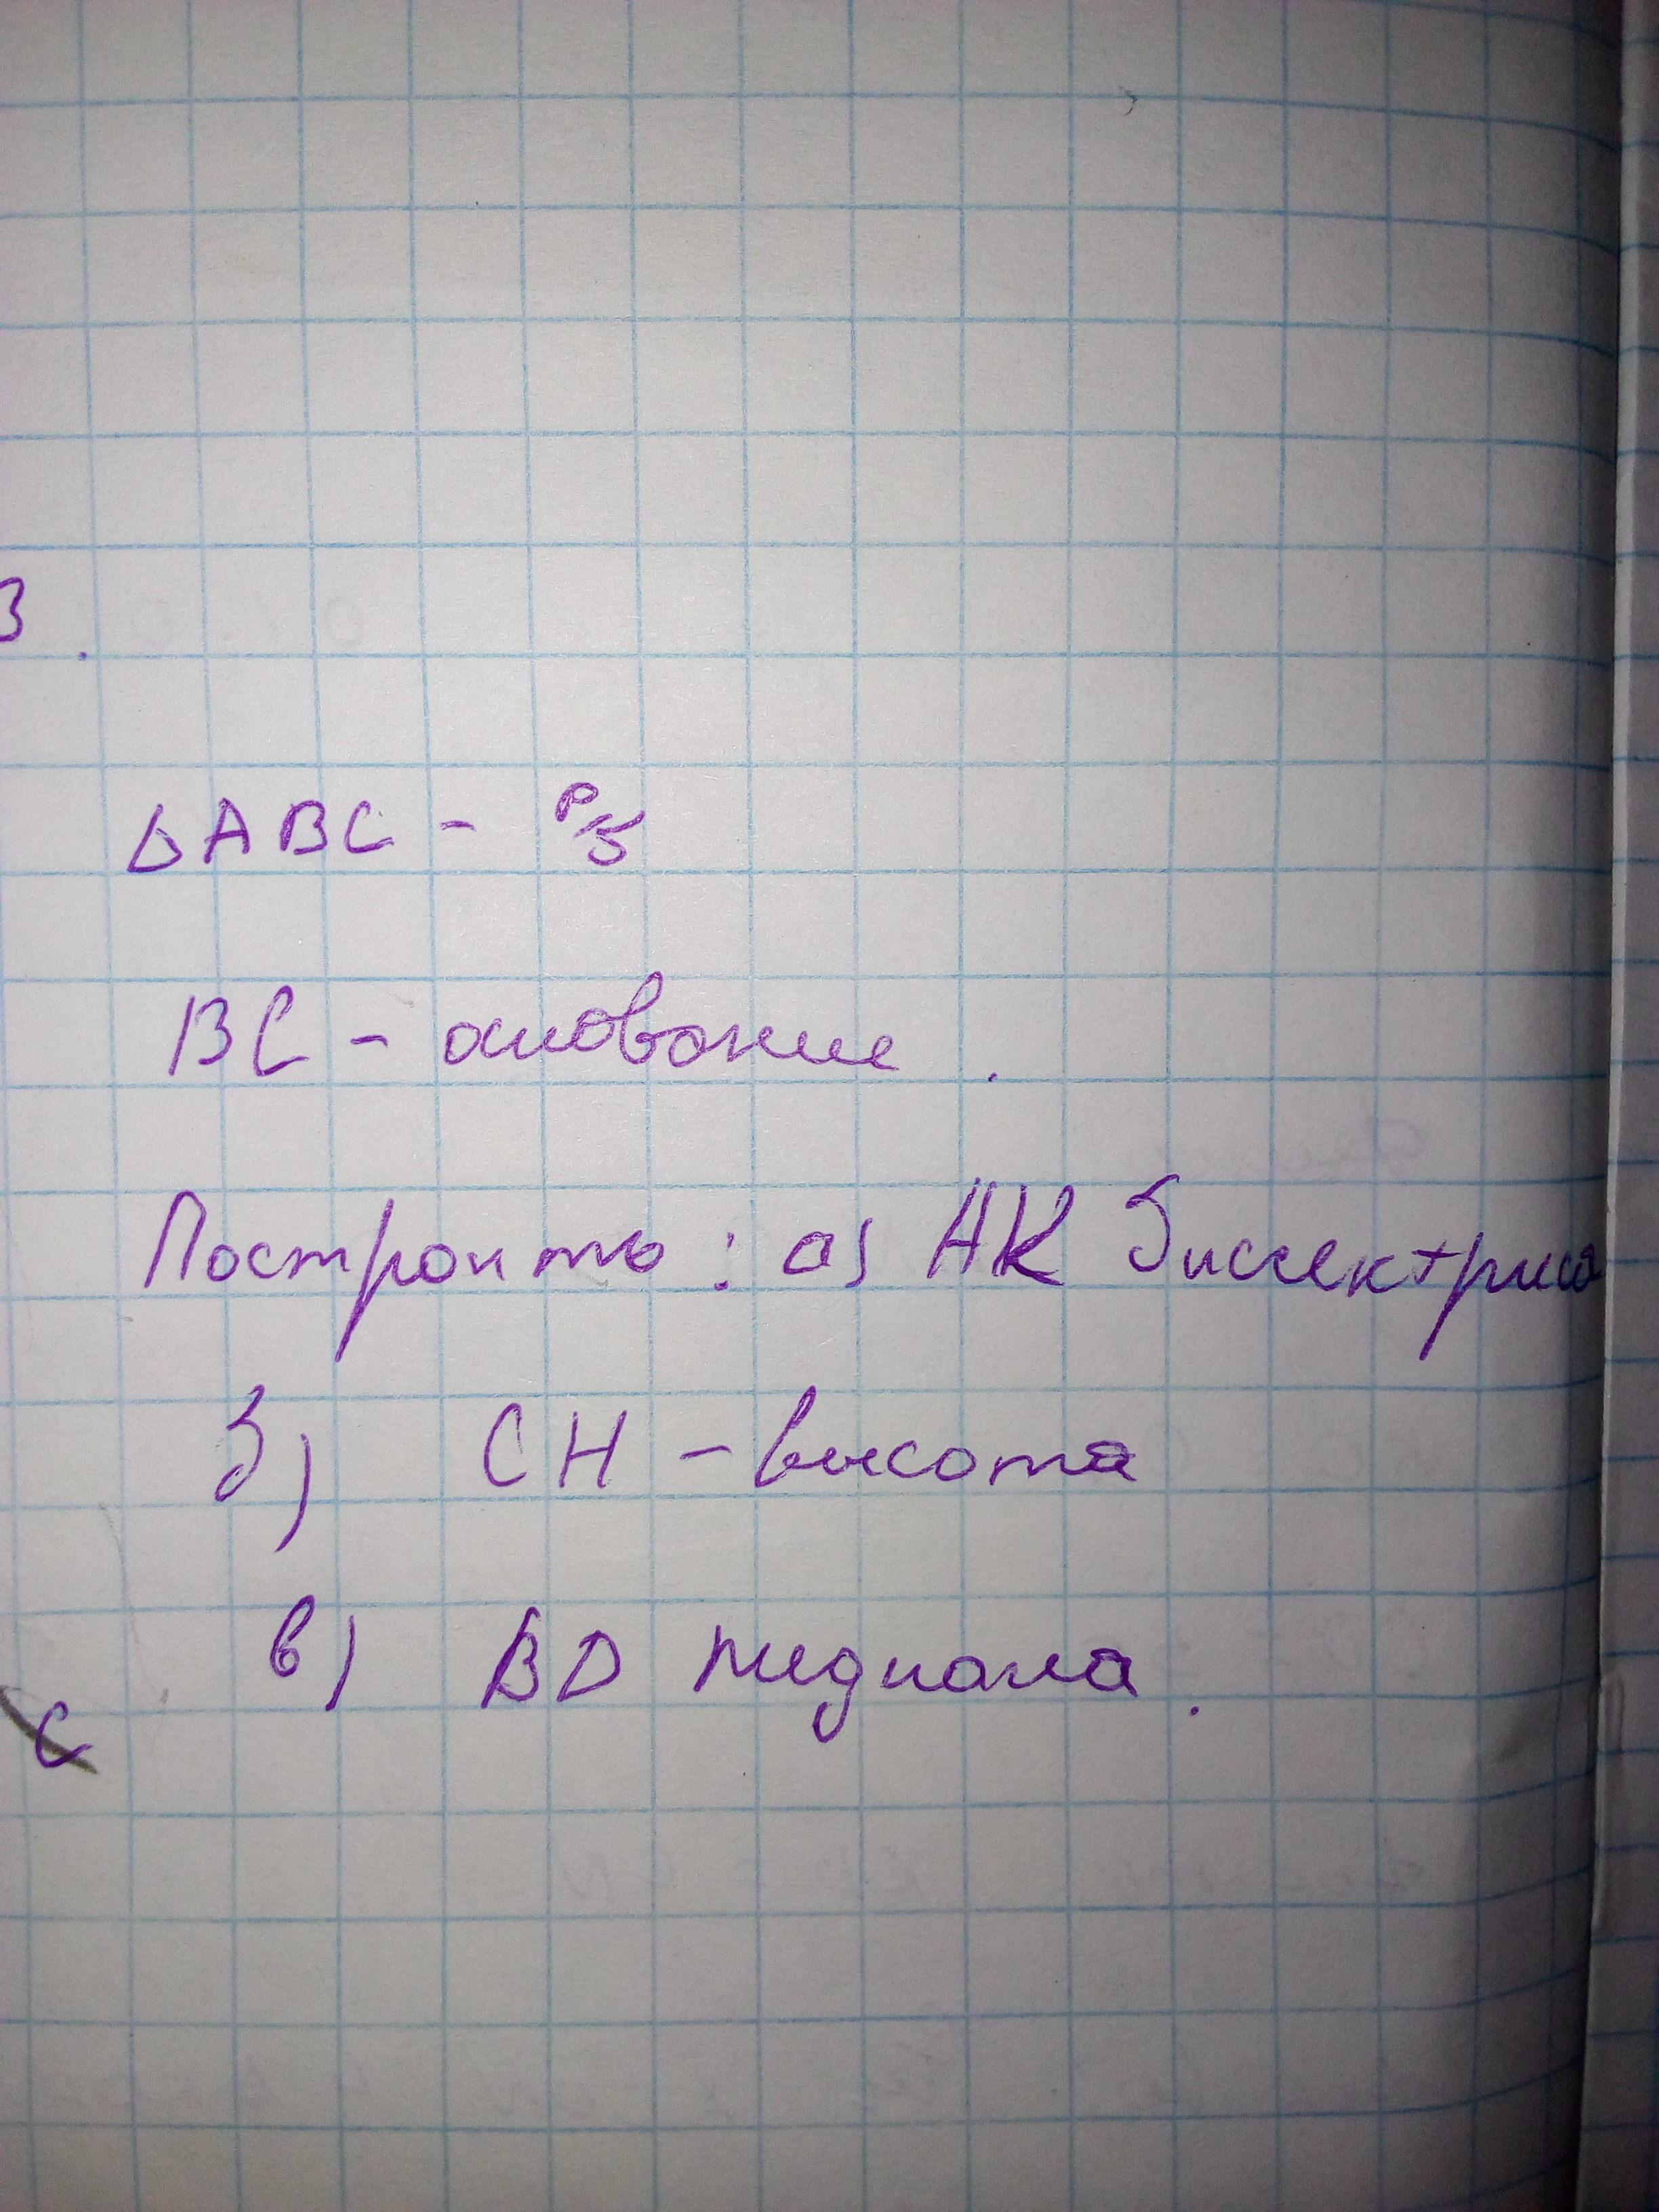 3.
ΔABC - р/б
BC - основание.
Построить: а) AK биссектриса
б) CH - высота
в) BD медиана.
C